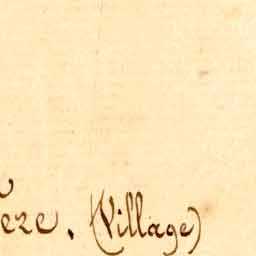 ere, (Village)